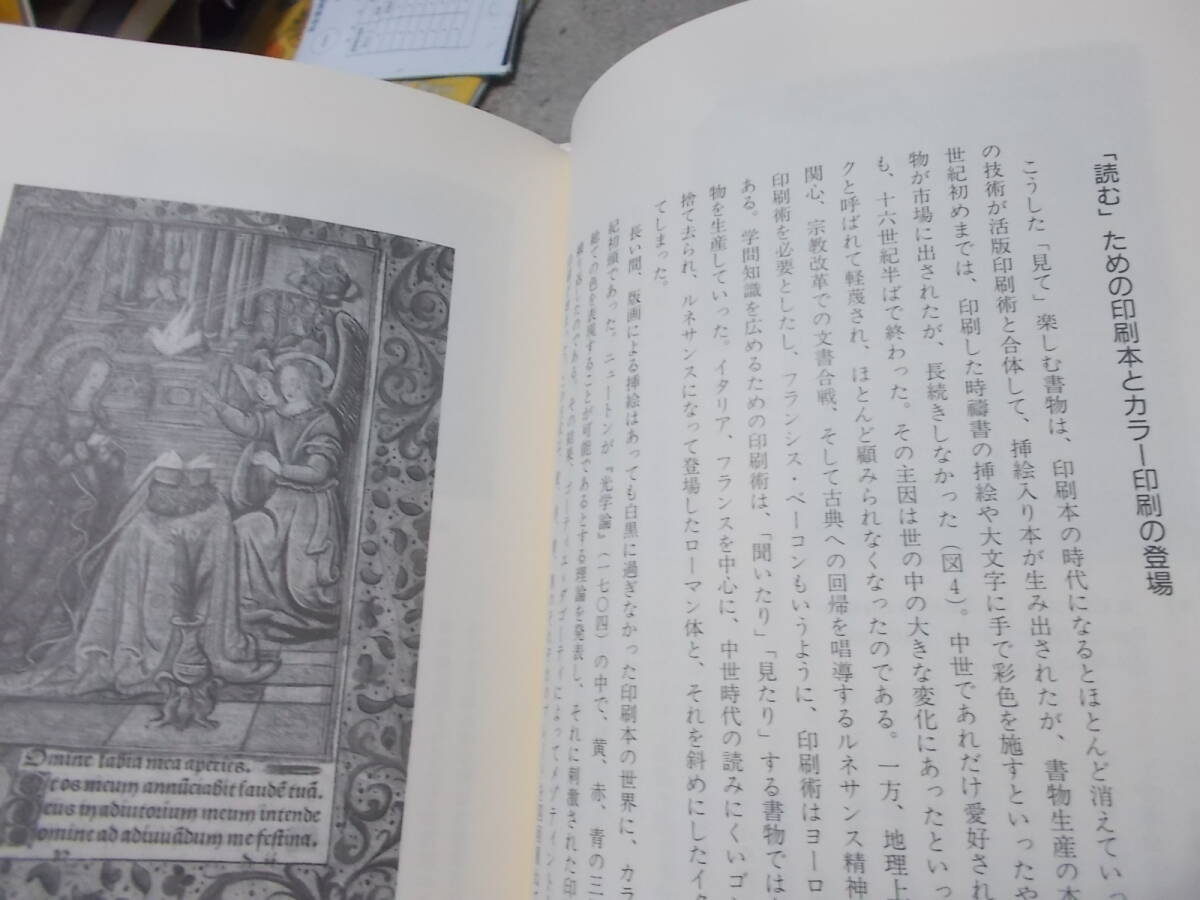 「読む」ための印刷本とカラー印刷の登場
こうした「見て」楽しむ書物は、印刷本の時代になるとほとんど消えていっ
の技術が活版印刷術と合体して、挿絵入り本が生み出されたが、書物生産の本
世紀初めまでは、印刷した時禱書の挿絵や大文字に手で彩色を施すといったや
物が市場に出されたが、長続きしなかった（図4）。中世であれだけ愛好され
も、十六世紀半ばで終わった。その主因は世の中の大きな変化にあったといっ
クと呼ばれて軽蔑され、ほとんど顧みられなくなったのである。一方、地理上
関心、宗教改革での文書合戦、そして古典への回帰を唱導するルネサンス精神
印刷術を必要としたし、フランシス・ベーコンもいうように、印刷術はヨーロ
ある。学問知識を広めるための印刷術は、「聞いたり」「見たり」する書物では
物を生産していった。イタリア、フランスを中心に、中世時代の読みにくいゴ
捨て去られ、ルネサンスになって登場したローマン体と、それを斜めにしたイタ
てしまった。
長い間、版画による挿絵はあっても白黒に過ぎなかった印刷本の世界に、カラ
紀初頭であった。ニュートンが『光学論』（一七〇四）の中で、黄、赤、青の三
総ての色を表現することが可能であるとする理論を発表し、それに刺激された印
によってメゾティント
Domine labia mea aperies.
Et os meum annūciabit laudē tuā.
Deus in adiutorium meum intende
Domine ad adiuuādum me festina.